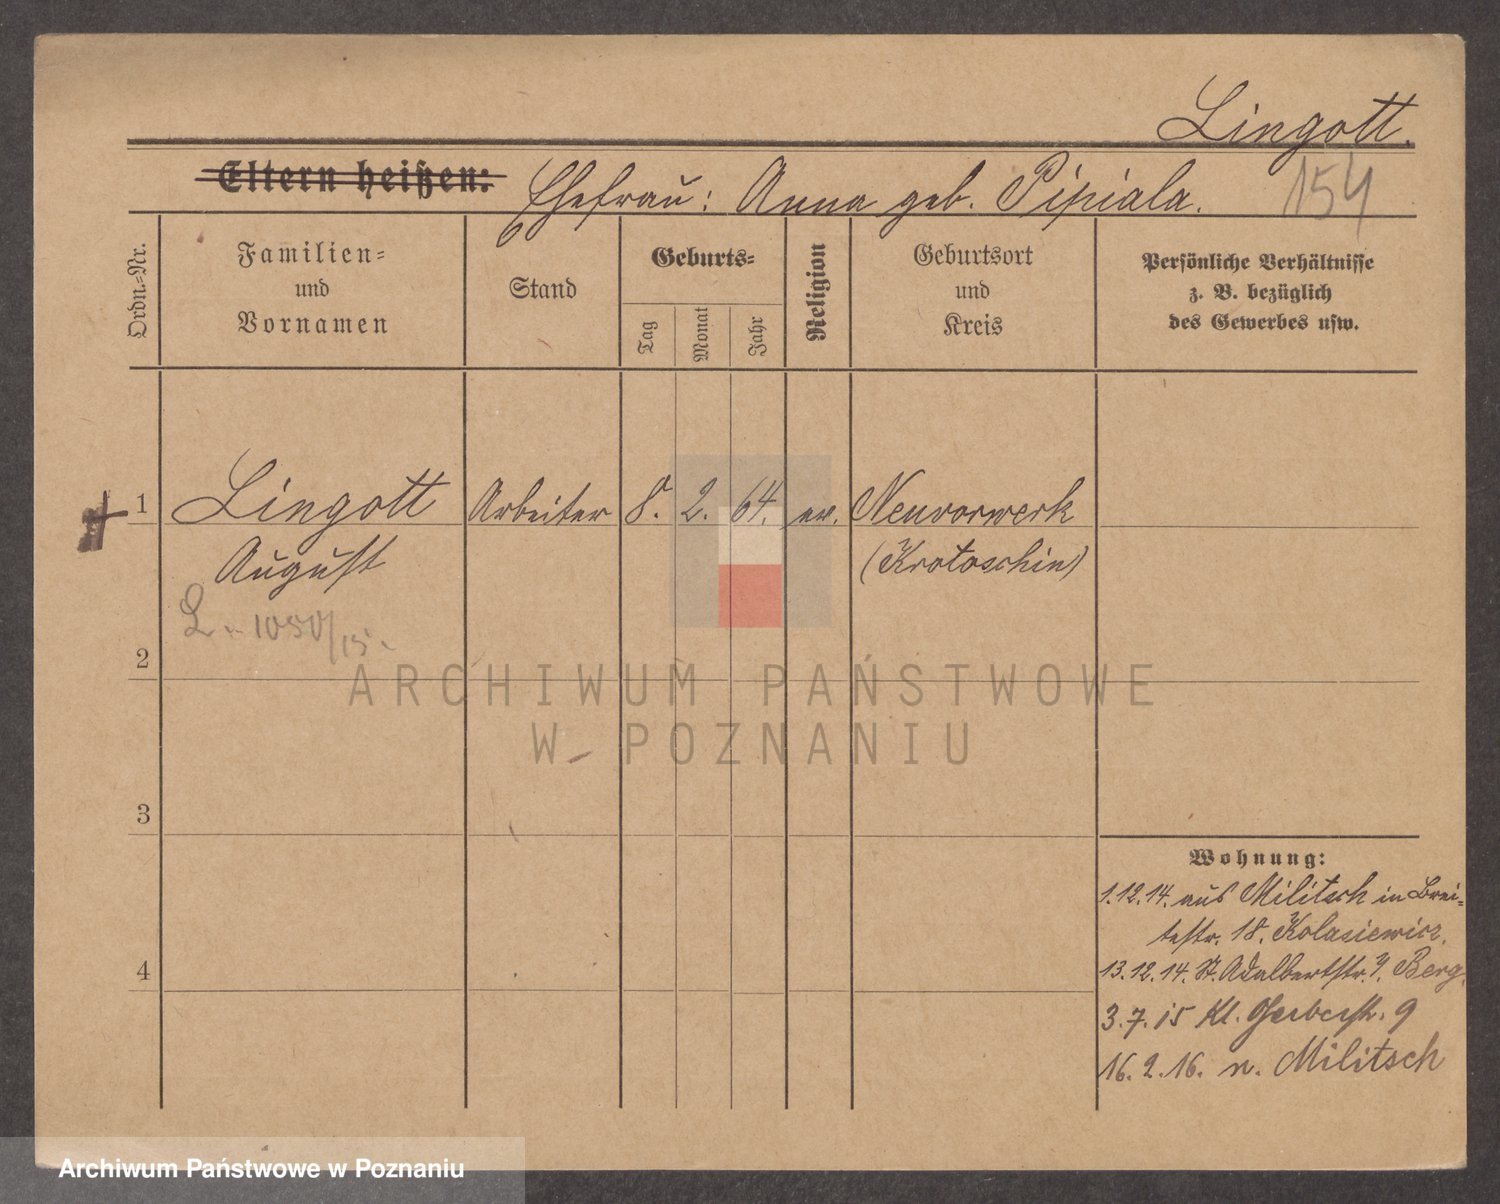 Lingott.
Eltern heißen: Ehefrau: Anna geb. Pipiala. 154
Ordn.-Nr.
Familien-
und
Vornamen
Stand
Geburts-
Tag
Monat
Jahr
Religion
Geburtsort
und
Kreis
Persönliche Verhältnisse
z. B. bezüglich
des Gewerbes usw.
1 Lingott Arbeiter 8. 2. 64. ev. Neuvorwerk
August (Krotoschin)
1050/15.
2
3
4
Wohnung:
1.12.14. aus Militsch in Brei-
testr. 18. Kolasiewicz.
13.12.14. St. Adalbertstr. Berg.
3.7.15 Kl. Gerberstr. 9
16.2.16. n. Militsch
ARCHIWUM PAŃSTWOWE
W POZNANIU
Archiwum Państwowe w Poznaniu